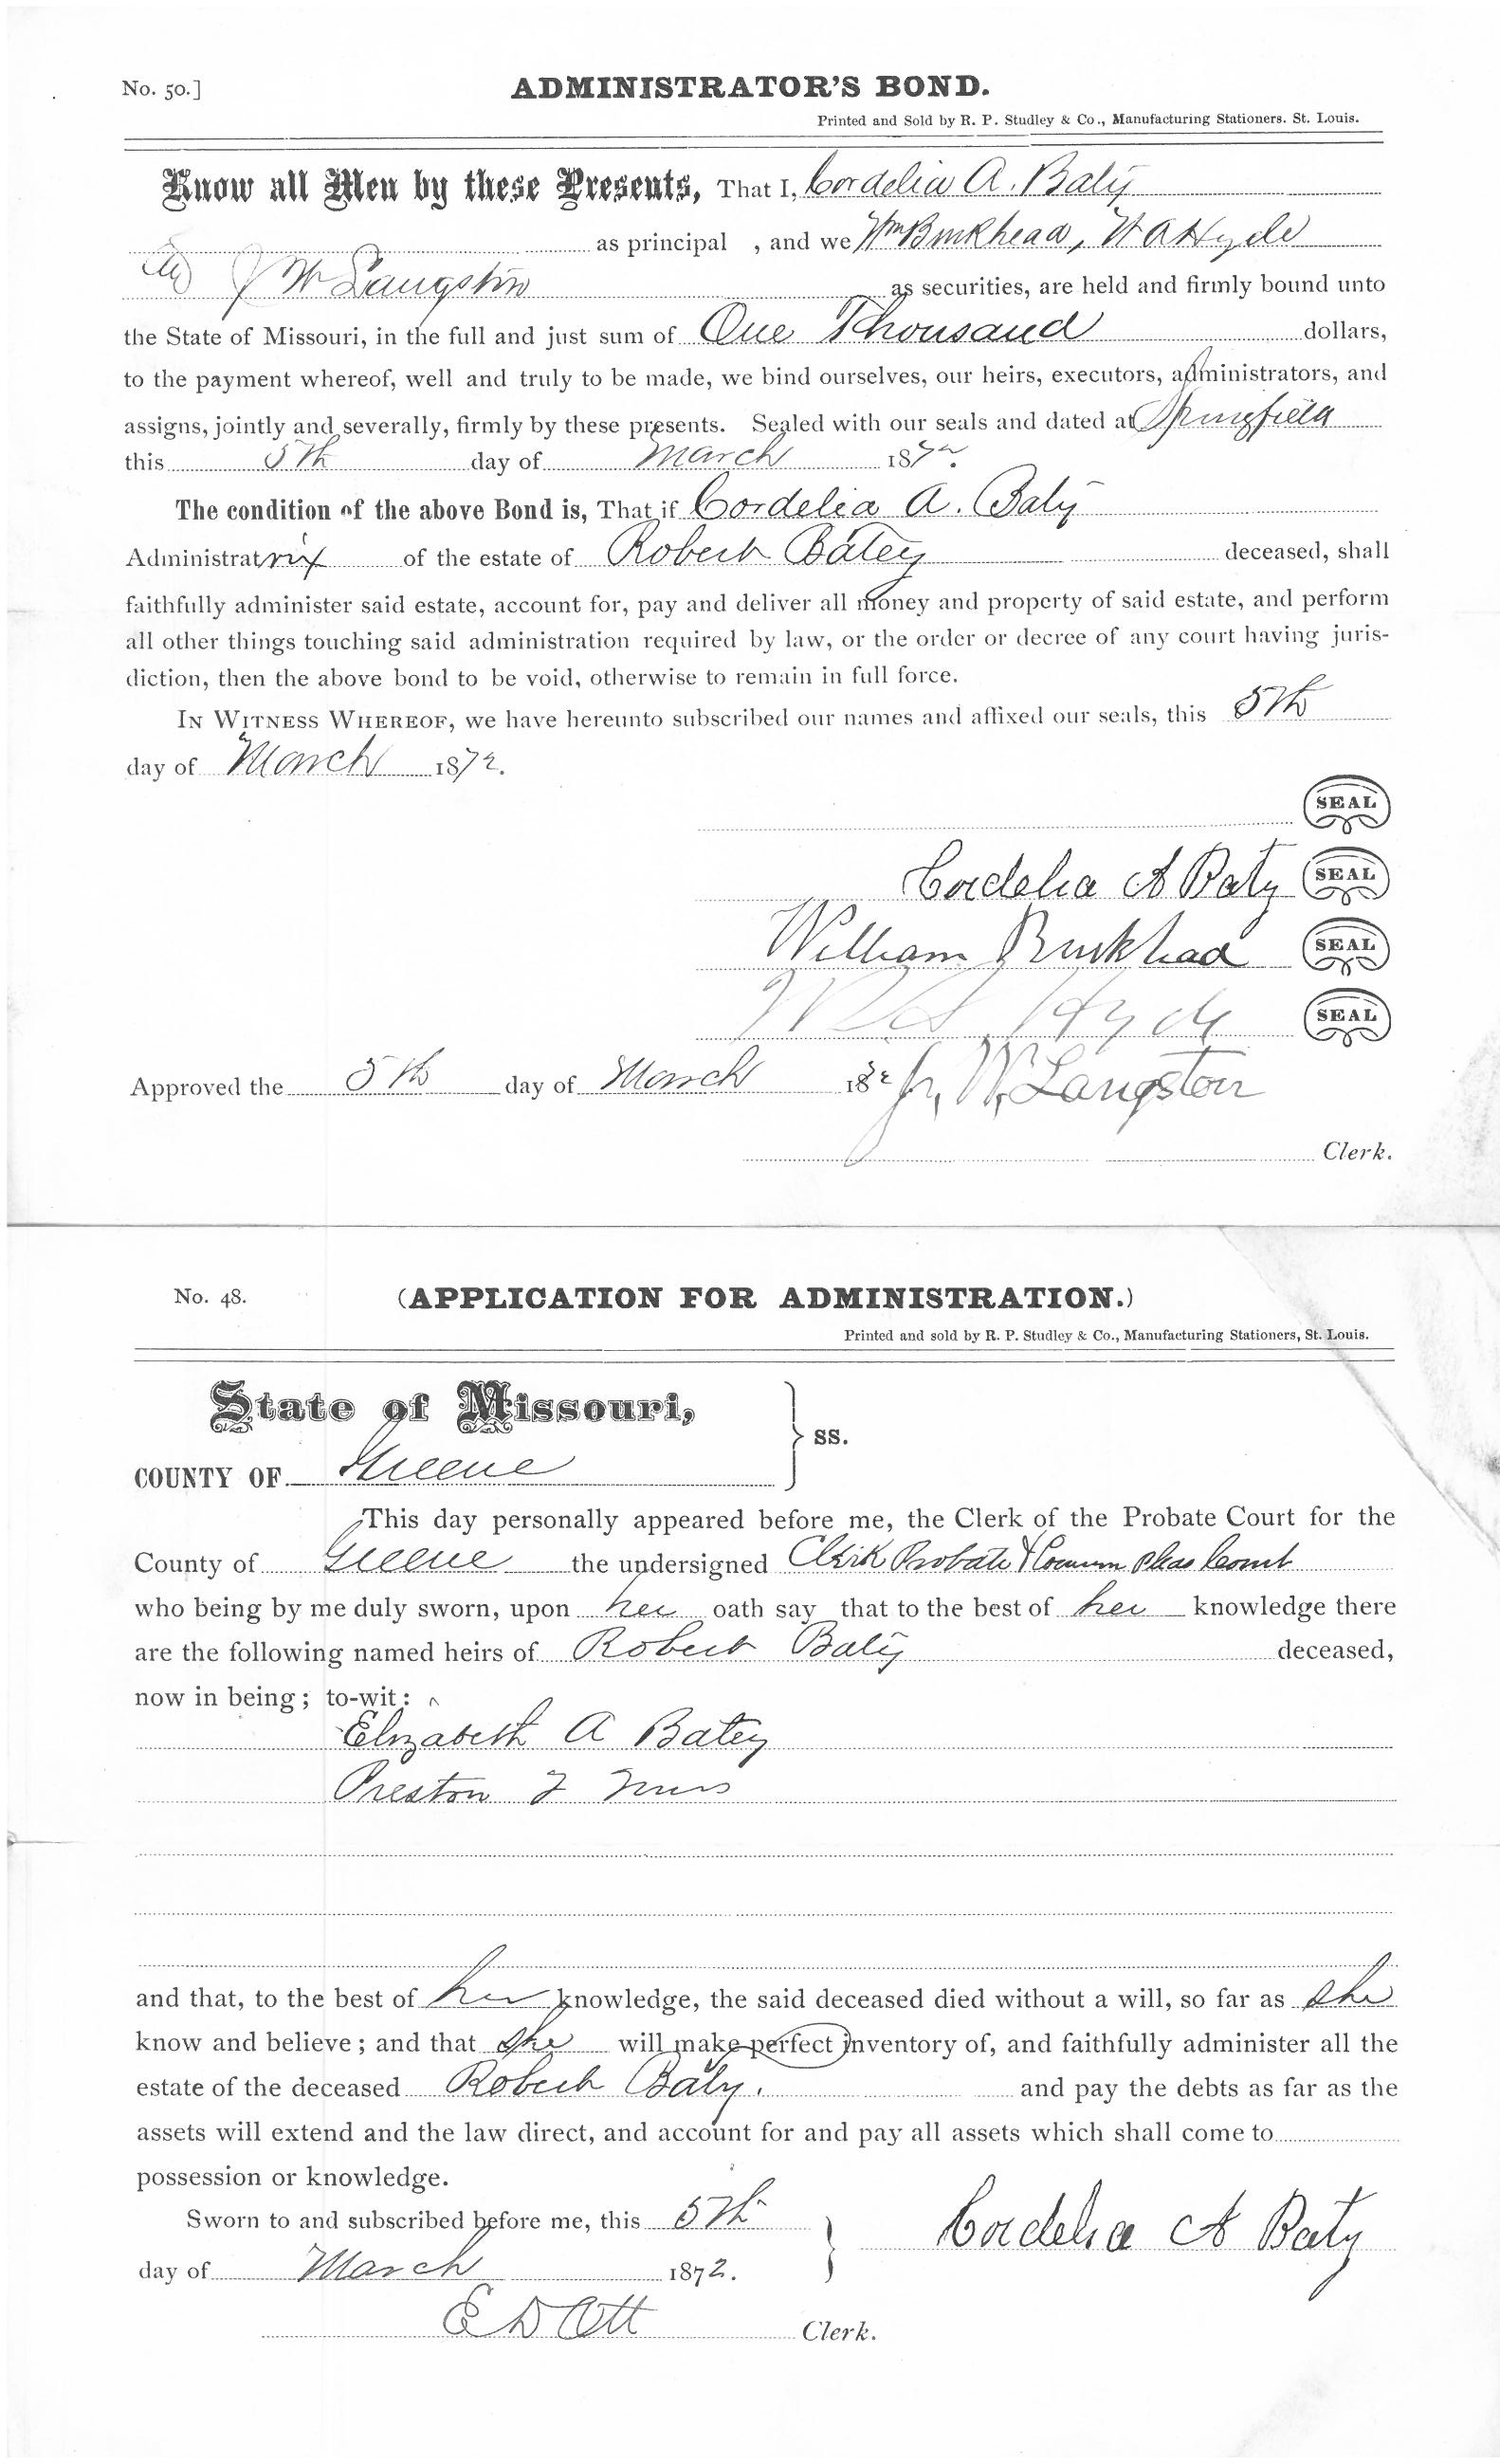 No. 50.]
ADMINISTRATOR'S BOND.
Printed and Sold by R. P. Studley & Co., Manufacturing Stationers. St. Louis.
Know all Men by these Presents, That I, Cordelia A. Baty
as principal , and we Wm Burkhead, W A Hyde
J W Langston as securities, are held and firmly bound unto
the State of Missouri, in the full and just sum of One Thousand dollars,
to the payment whereof, well and truly to be made, we bind ourselves, our heirs, executors, administrators, and
assigns, jointly and severally, firmly by these presents. Sealed with our seals and dated at Springfield
this 5th day of March 1872.
The condition of the above Bond is, That if Cordelia A. Baty
Administratrix of the estate of Robert Batey deceased, shall
faithfully administer said estate, account for, pay and deliver all money and property of said estate, and perform
all other things touching said administration required by law, or the order or decree of any court having juris-
diction, then the above bond to be void, otherwise to remain in full force.
In Witness Whereof, we have hereunto subscribed our names and affixed our seals, this 5th
day of March 1872.
SEAL
Cordelia A Baty SEAL
William Burkhead SEAL
Hyde SEAL
Approved the 5th day of March 1872 J. W. Langston
Clerk.
No. 48.
(APPLICATION FOR ADMINISTRATION.)
Printed and sold by R. P. Studley & Co., Manufacturing Stationers, St. Louis.
State of Missouri,
ss.
COUNTY OF Greene
This day personally appeared before me, the Clerk of the Probate Court for the
County of Greene the undersigned Clerk Probate & Common Pleas Court
who being by me duly sworn, upon her oath say that to the best of her knowledge there
are the following named heirs of Robert Baty deceased,
now in being; to-wit:
Elizabeth A Batey
Preston
and that, to the best of her knowledge, the said deceased died without a will, so far as she
know and believe; and that she will make perfect inventory of, and faithfully administer all the
estate of the deceased Robert Baty. and pay the debts as far as the
assets will extend and the law direct, and account for and pay all assets which shall come to
possession or knowledge.
Sworn to and subscribed before me, this 5th
Cordelia A Baty
day of March 1872.
E D Ott Clerk.